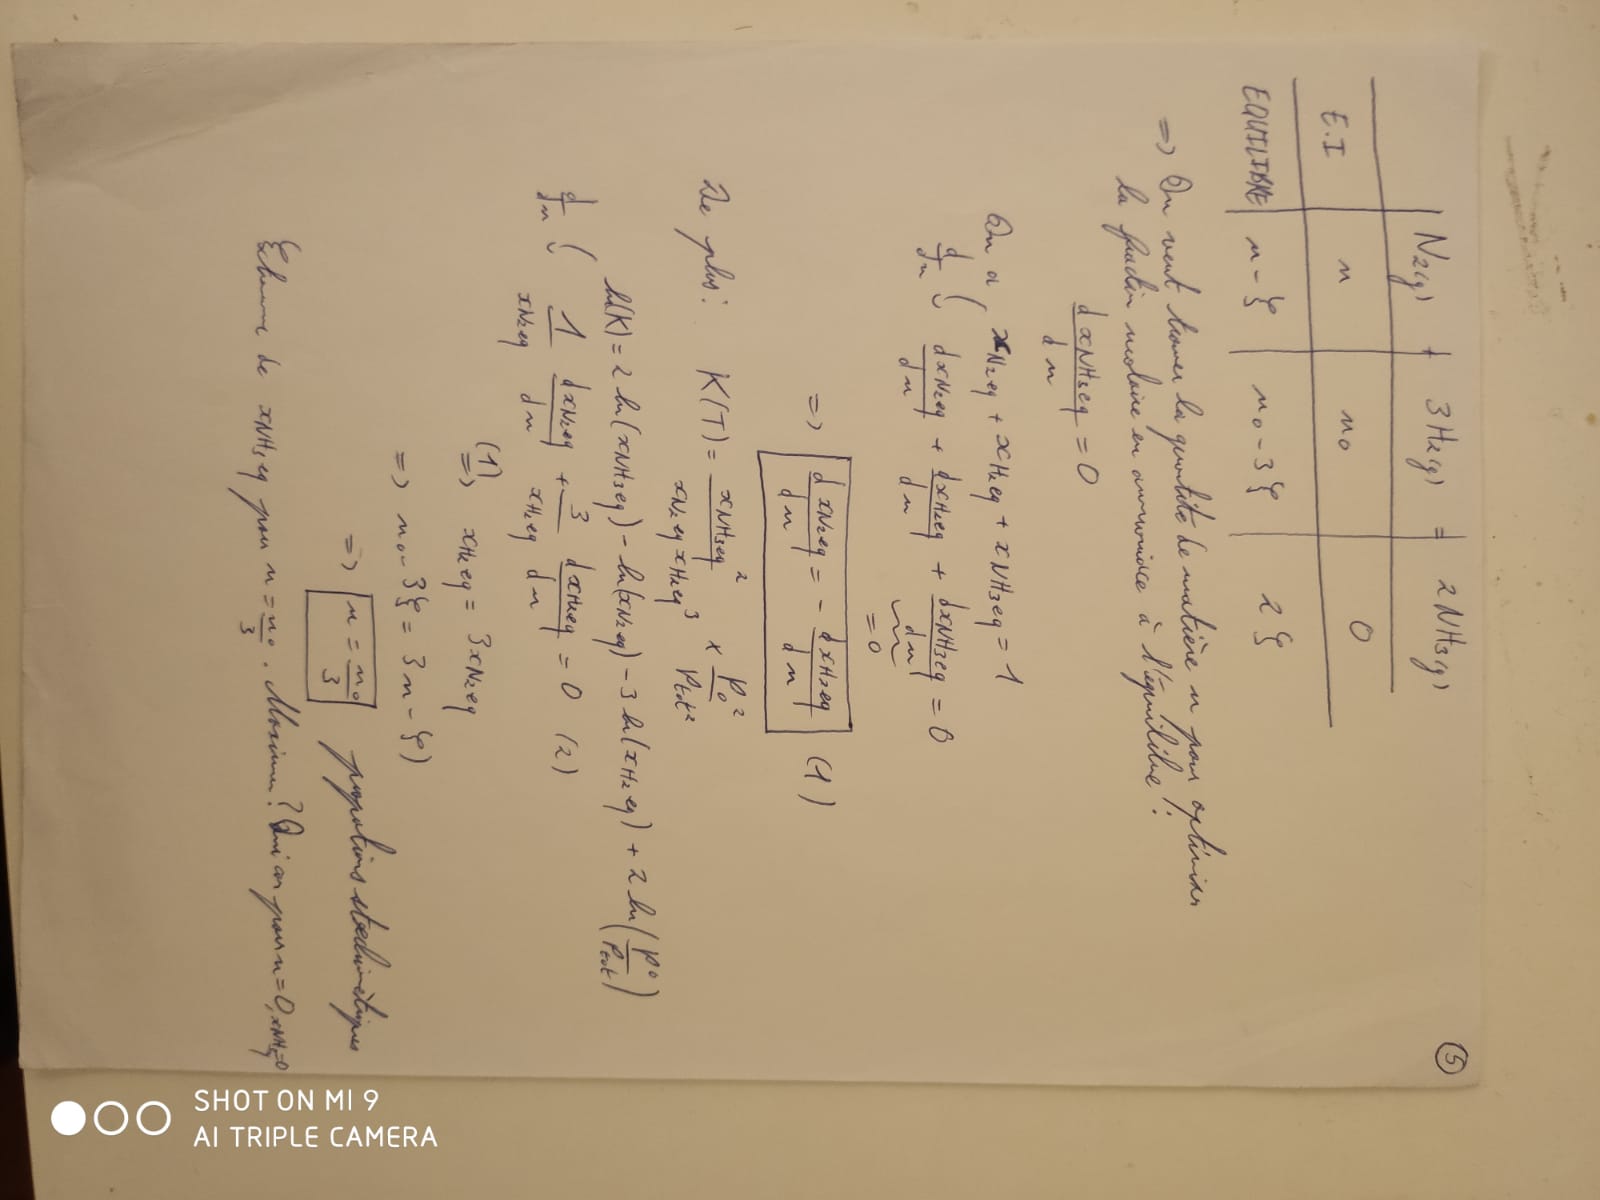 5
N2(g) + 3H2(g) = 2NH3(g)
E.I n n0 0
EQUILIBRE n - ξ n0 - 3ξ 2ξ
=> On veut trouver la quantité de matière n pour optimiser
la fraction molaire en ammoniac à l'équilibre :
d xNH3eq / dn = 0
On a xN2eq + xH2eq + xNH3eq = 1
d/dn ( dxN2eq/dn + dxH2eq/dn + dxNH3eq/dn = 0
= 0
=> d xN2eq/dn = - dxH2eq/dn (1)
De plus : K(T) = xNH3eq² / xN2eq xH2eq³ × P0²/Ptot²
ln(K) = 2 ln(xNH3eq) - ln(xN2eq) - 3 ln(xH2eq) + 2 ln(P°/Ptot)
d/dn ( 1/xN2eq dxN2eq/dn + 3/xH2eq dxH2eq/dn = 0 (2)
(1) => xH2eq = 3xN2eq
=> n0 - 3ξ = 3n - ξ)
=> n = n0/3 propotions stœchiométriques
de xNH3eq pour n = n0/3 . Maximum ? Oui car pour n = 0, xNH3eq=0
SHOT ON MI 9
AI TRIPLE CAMERA